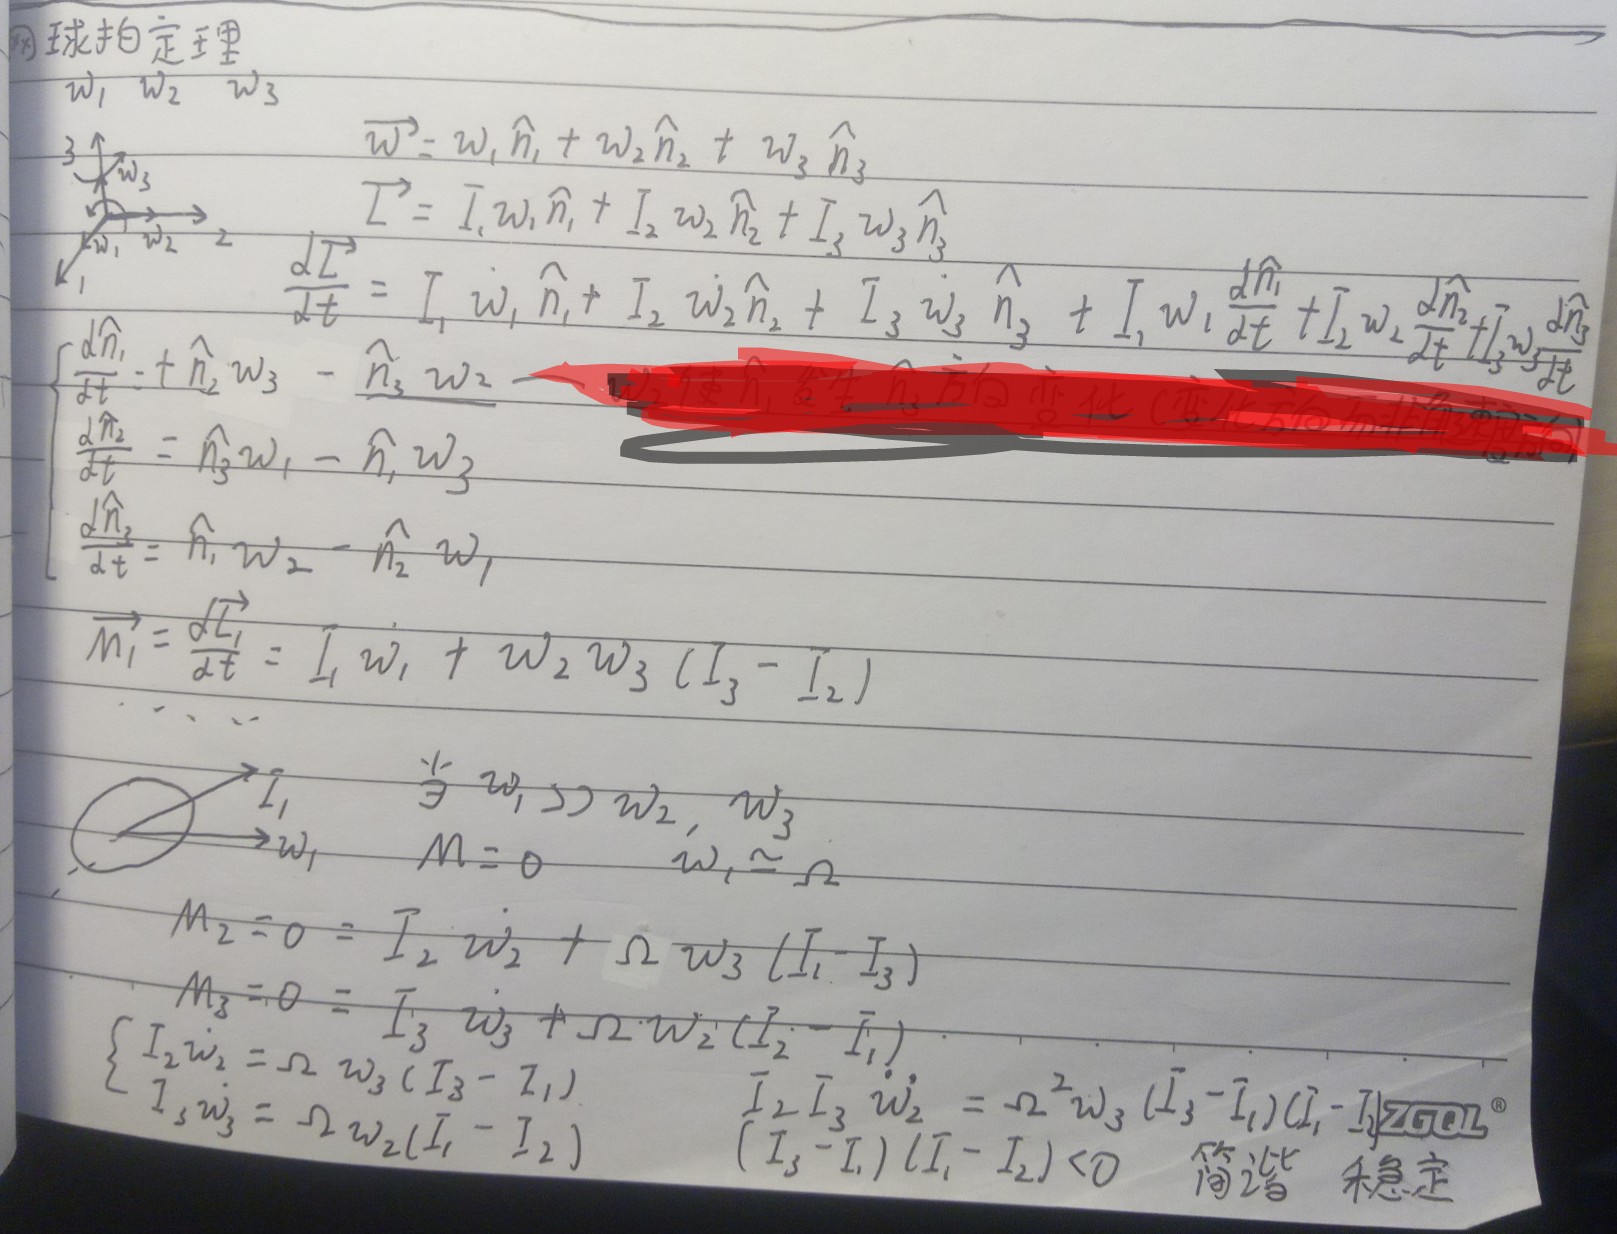 网球拍定理
w₁ w₂ w₃
3 w₃ w₁ w₂ 2 1
w⃗ = w₁n̂₁ + w₂n̂₂ + w₃n̂₃
L⃗ = I₁w₁n̂₁ + I₂w₂n̂₂ + I₃w₃n̂₃
dL⃗/dt = I₁ẇ₁n̂₁ + I₂ẇ₂n̂₂ + I₃ẇ₃n̂₃ + I₁w₁dn̂₁/dt + I₂w₂dn̂₂/dt + I₃w₃dn̂₃/dt
dn̂₁/dt = + n̂₂w₃ - n̂₃w₂
dn̂₂/dt = n̂₃w₁ - n̂₁w₃
dn̂₃/dt = n̂₁w₂ - n̂₂w₁
M⃗₁ = dL⃗₁/dt = I₁ẇ₁ + w₂w₃(I₃ - I₂)
......
I₁ w₁
当 w₁ >> w₂, w₃
M = 0 w₁ ≃ Ω
M₂ = 0 = I₂ẇ₂ + Ωw₃(I₁ - I₃)
M₃ = 0 = I₃ẇ₃ + Ωw₂(I₂ - I₁)
I₂ẇ₂ = Ωw₃(I₃ - I₁)
I₃ẇ₃ = Ωw₂(I₁ - I₂)
I₂I₃ẅ₂ = Ω²w₃(I₃ - I₁)(I₁ - I₂
ZGQL®
(I₃ - I₁)(I₁ - I₂) < 0 简谐 稳定